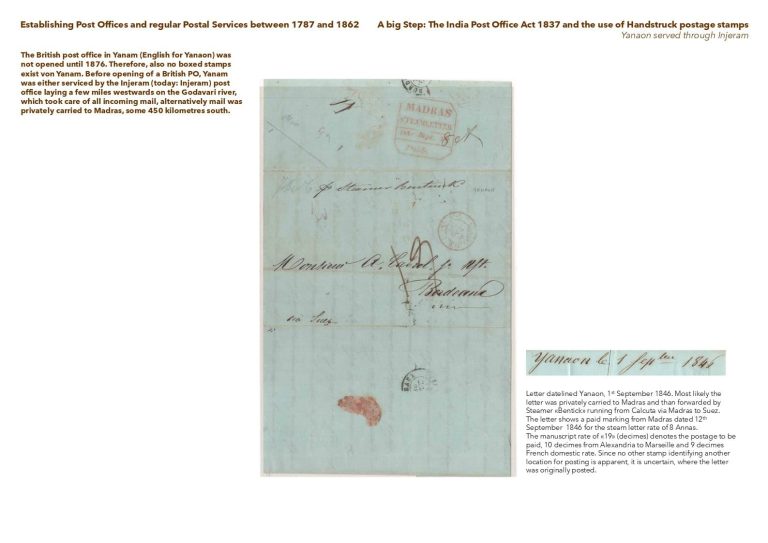 Establishing Post Offices and regular Postal Services between 1787 and 1862
A big Step: The India Post Office Act 1837 and the use of Handstruck postage stamps
Yanaon served through Injeram
The British post office in Yanam (English for Yanaon) was
not opened until 1876. Therefore, also no boxed stamps
exist von Yanam. Before opening of a British PO, Yanam
was either serviced by the Injeram (today: Injeram) post
office laying a few miles westwards on the Godavari river,
which took care of all incoming mail, alternatively mail was
privately carried to Madras, some 450 kilometres south.
MADRAS
STEAMLETTER
pr Steamer Bentinck
YANAON
Monsieur A.
Bordeaux
via Suez
Yanaon le 1 Septbre 1846
Letter datelined Yanaon, 1st September 1846. Most likely the
letter was privately carried to Madras and than forwarded by
Steamer «Bentick» running from Calcuta via Madras to Suez.
The letter shows a paid marking from Madras dated 12th
September 1846 for the steam letter rate of 8 Annas.
The manuscript rate of «19» (decimes) denotes the postage to be
paid, 10 decimes from Alexandria to Marseille and 9 decimes
French domestic rate. Since no other stamp identifying another
location for posting is apparent, it is uncertain, where the letter
was originally posted.